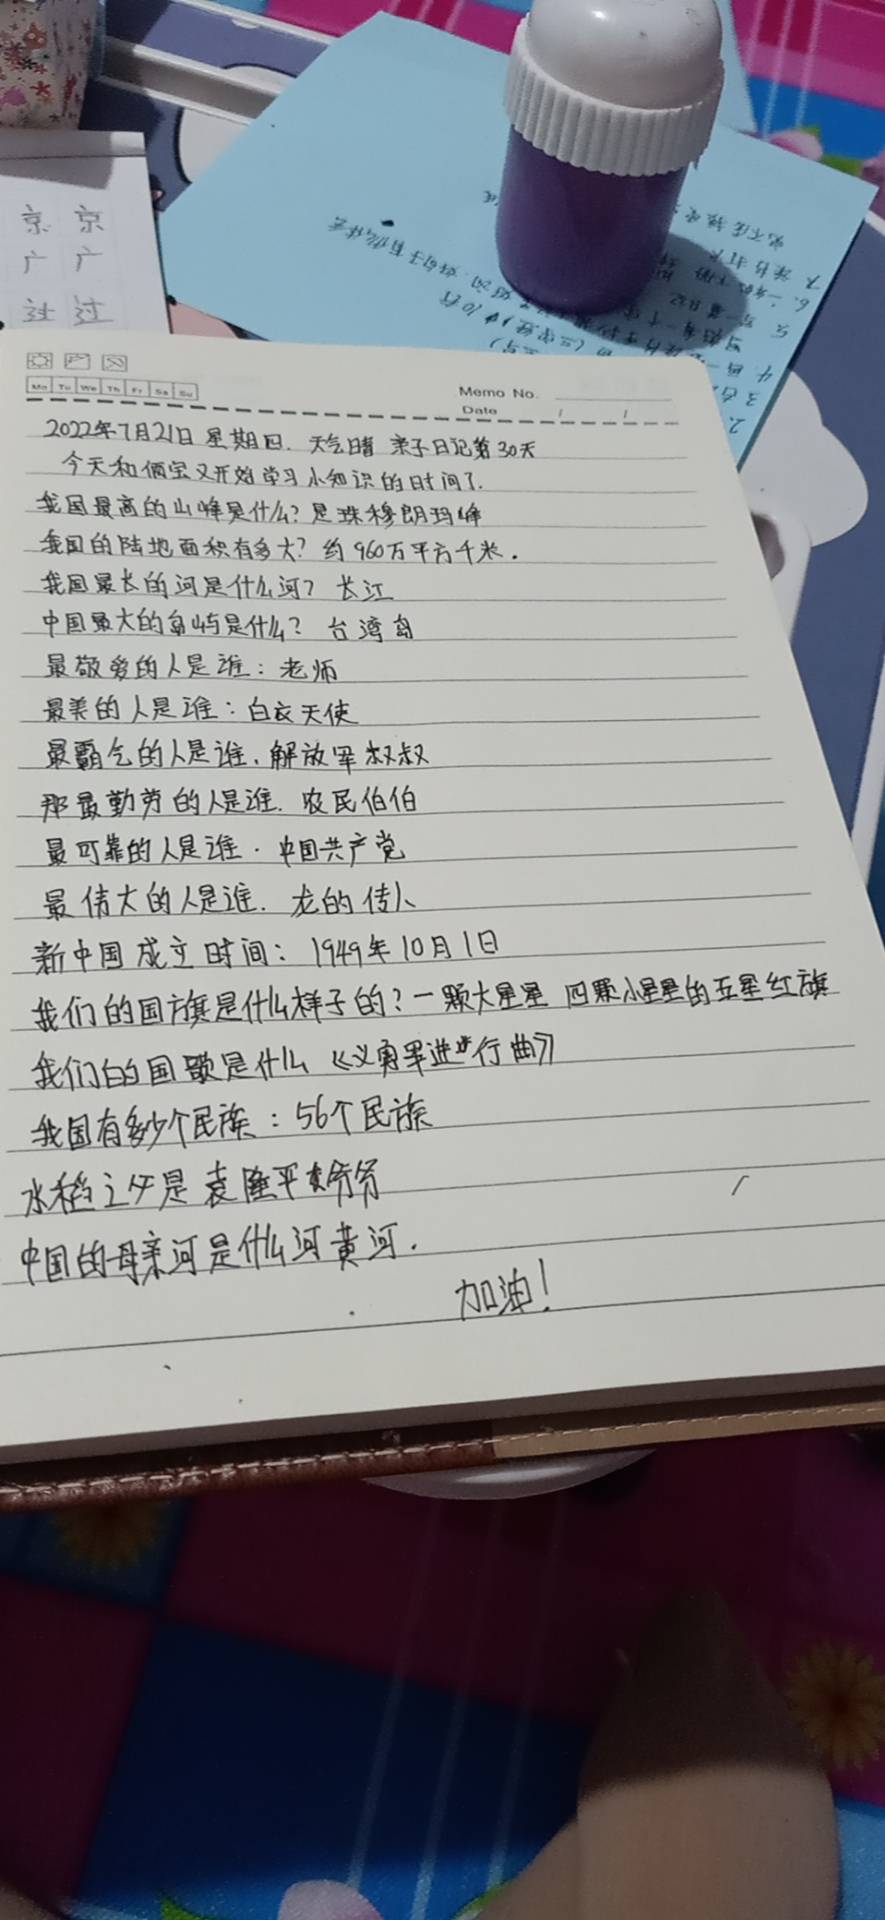 京 京
广 广
过 过
Mo Tu We Th Fr Sa Su
Memo No.
Date / /
2022年7月21日 星期四. 天气晴 亲子日记第30天
今天和俩宝又开始学习小知识的时间了.
我国最高的山峰是什么? 是珠穆朗玛峰
我国的陆地面积有多大? 约960万平方千米.
我国最长的河是什么河? 长江
中国最大的岛屿是什么? 台湾岛
最敬爱的人是谁: 老师
最美的人是谁: 白衣天使
最霸气的人是谁. 解放军叔叔
那最勤劳的人是谁. 农民伯伯
最可靠的人是谁. 中国共产党
最伟大的人是谁. 龙的传人
新中国成立时间: 1949年10月1日
我们的国旗是什么样子的? 一颗大星星 四颗小星星的五星红旗
我们的国歌是什么《义勇军进行曲》
我国有多少个民族: 56个民族
水稻之父是袁隆平爷爷
中国的母亲河是什么河黄河.
加油!